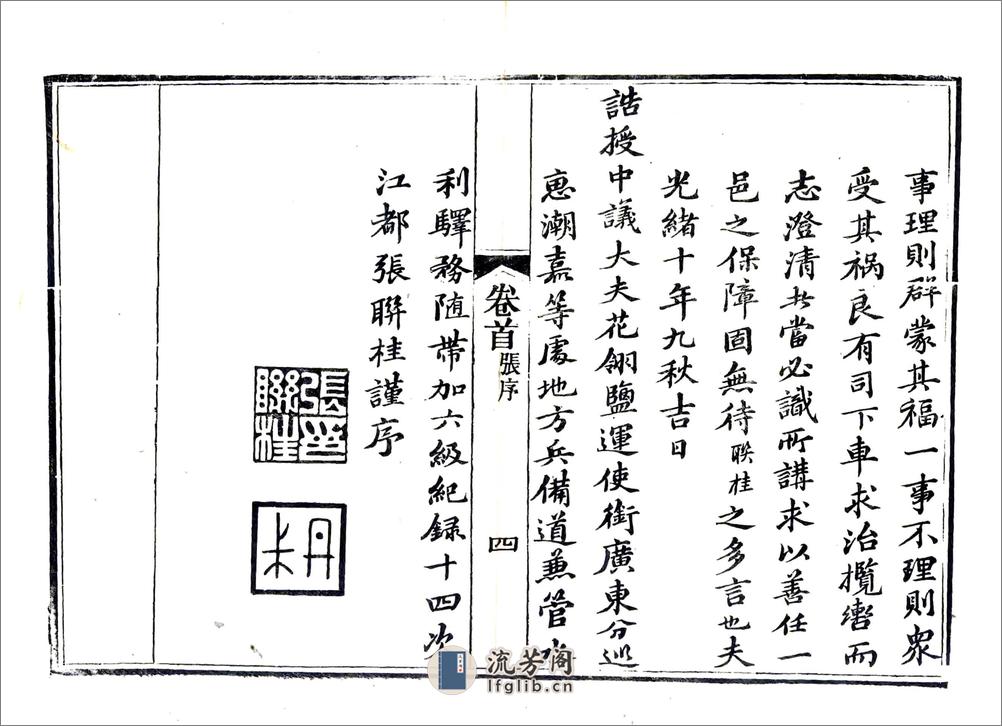 事理則群蒙其福一事不理則眾
受其禍良有司下車求治攬轡而
志澄清者當必識所講求以善任一
邑之保障固無待聯桂之多言也夫
光緒十年九秋吉日
誥授中議大夫花翎鹽運使銜廣東分巡
惠潮嘉等處地方兵備道兼管水
卷首
張序
四
利驛務随帶加六級紀録十四次
江都張聯桂謹序
張聯桂印
丹木
流芳阁
lfglib.cn